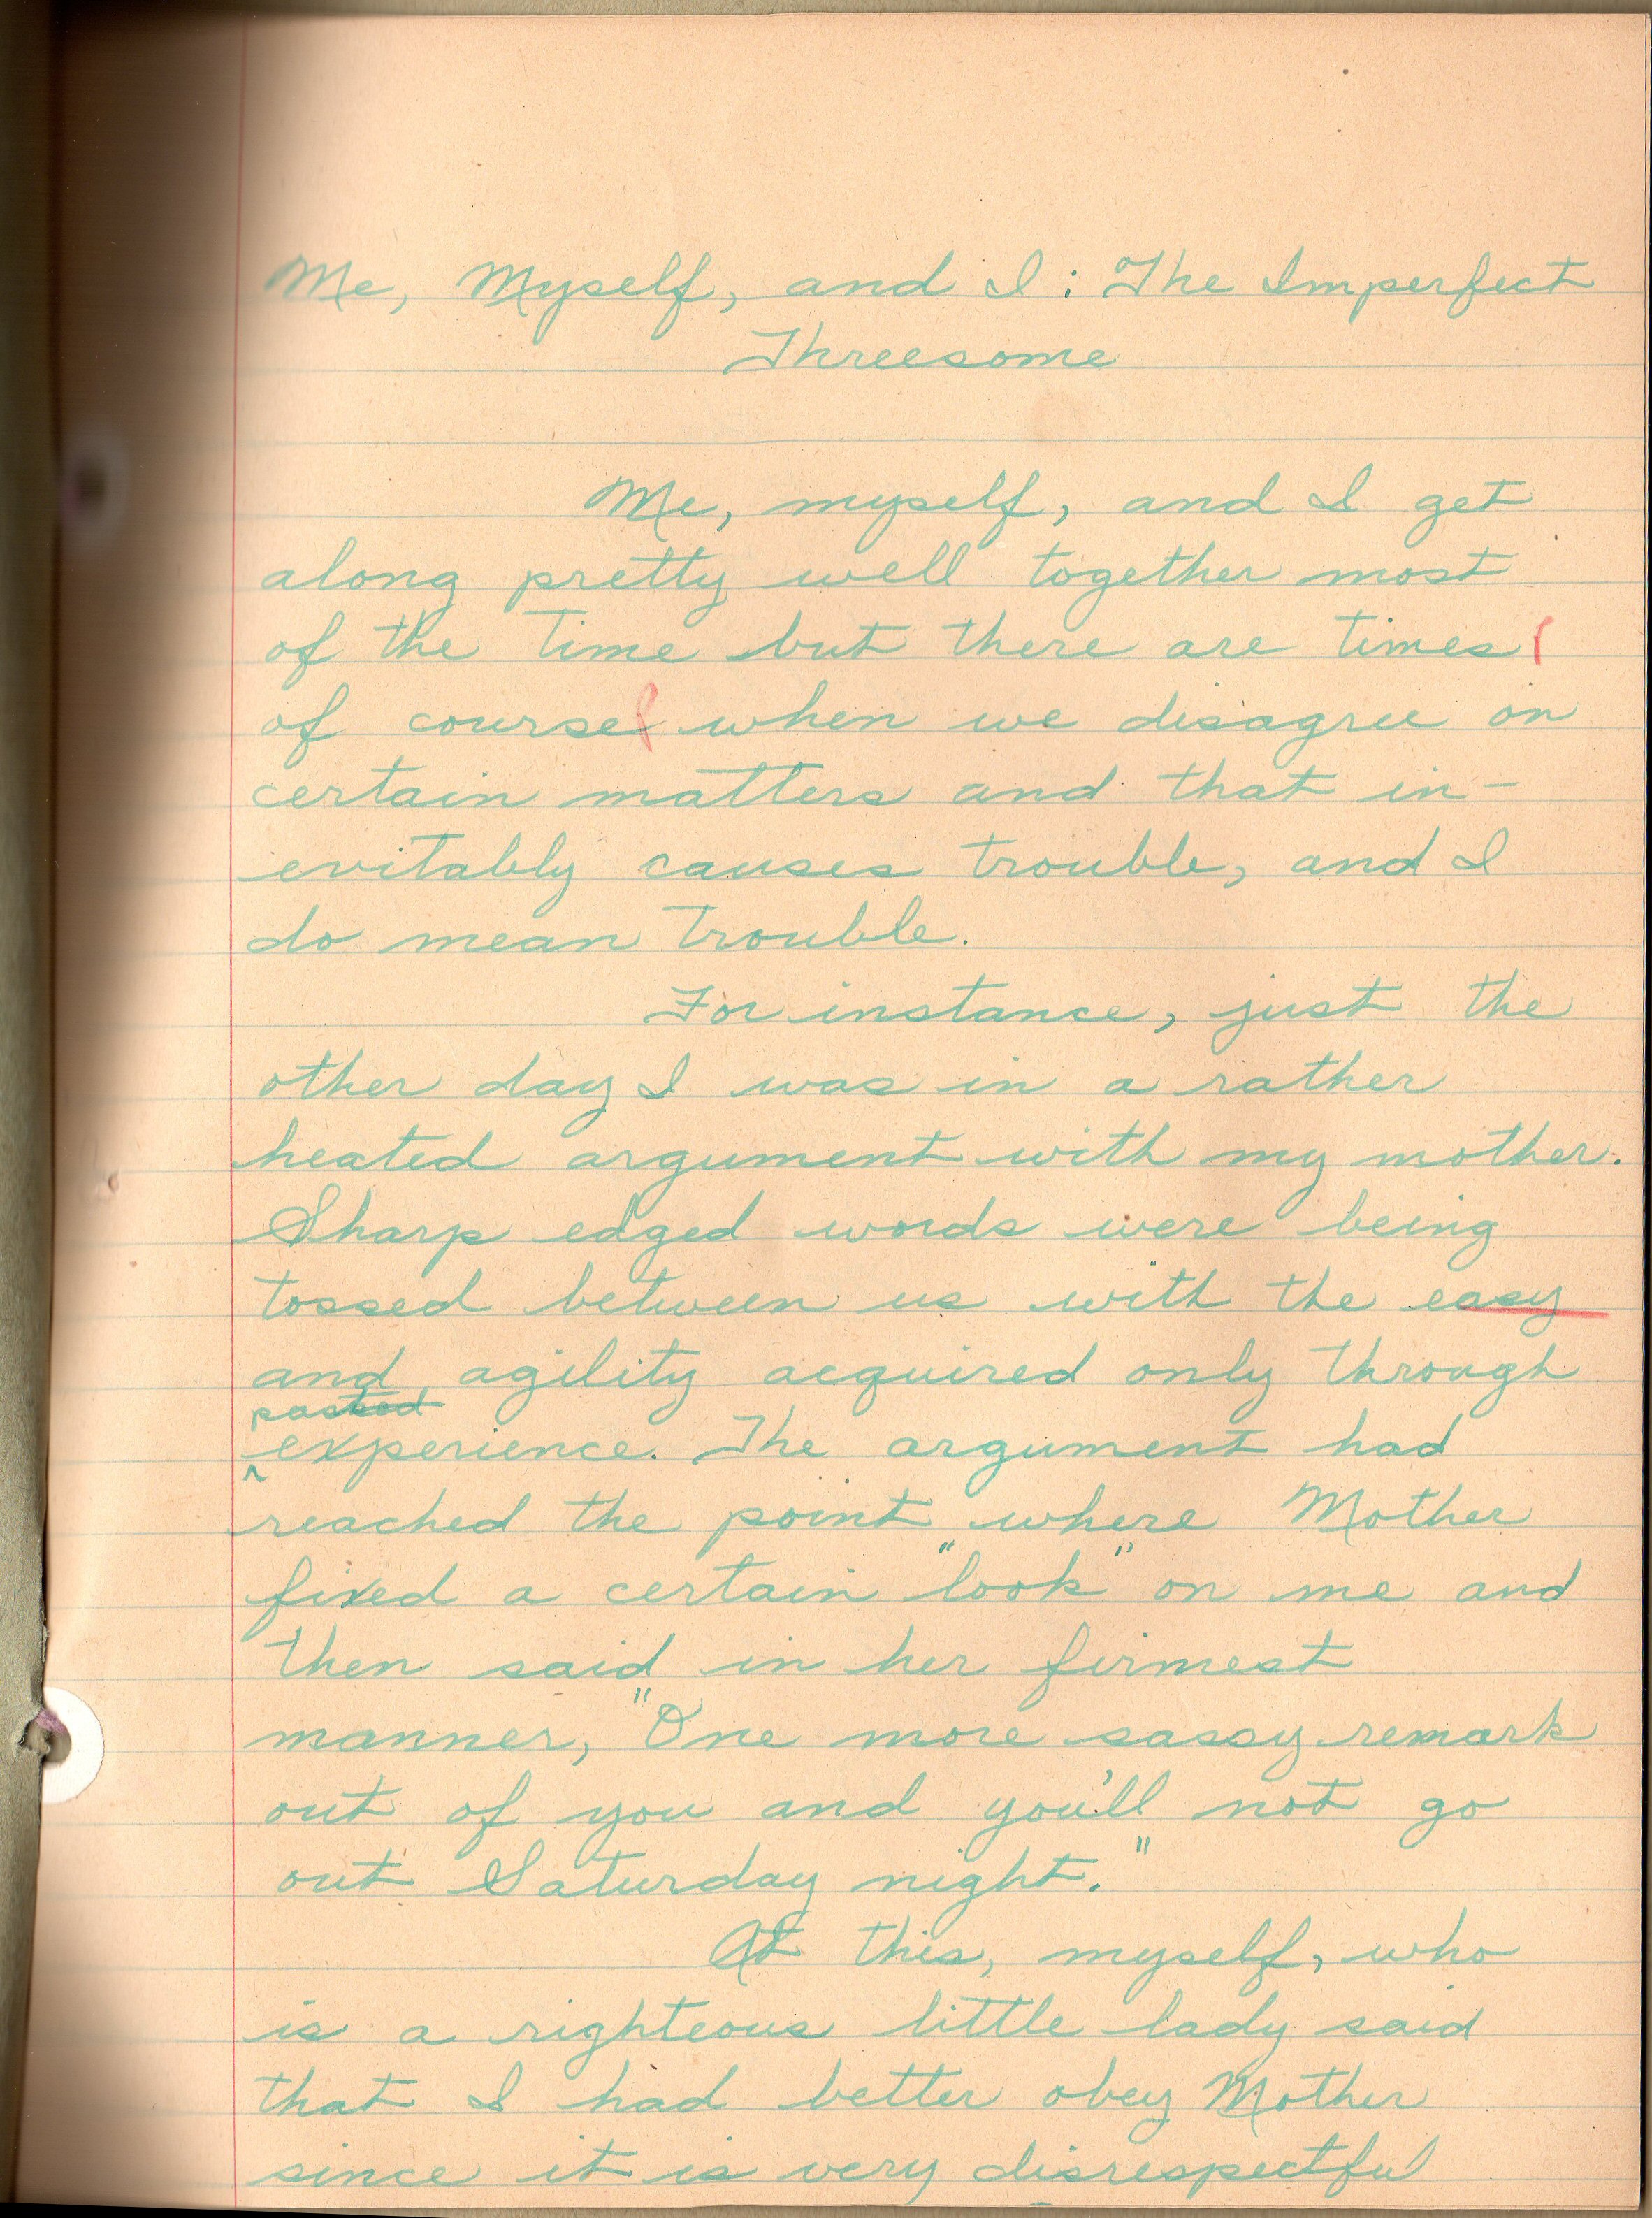 Me, Myself, and I: The Imperfect
Threesome
Me, myself, and I get
along pretty well together most
of the time but there are times
of course when we disagree on
certain matters and that in-
evitably causes trouble, and I
do mean trouble.
For instance, just the
other day I was in a rather
heated argument with my mother.
Sharp edged words were being
tossed between us with the easy
and agility acquired only through
passed
experience. The argument had
reached the point where Mother
fixed a certain "look" on me and
then said in her firmest
manner, "One more sassy remark
out of you and you'll not go
out Saturday night."
At this, myself, who
is a righteous little lady said
that I had better obey Mother
since it is very disrespectful